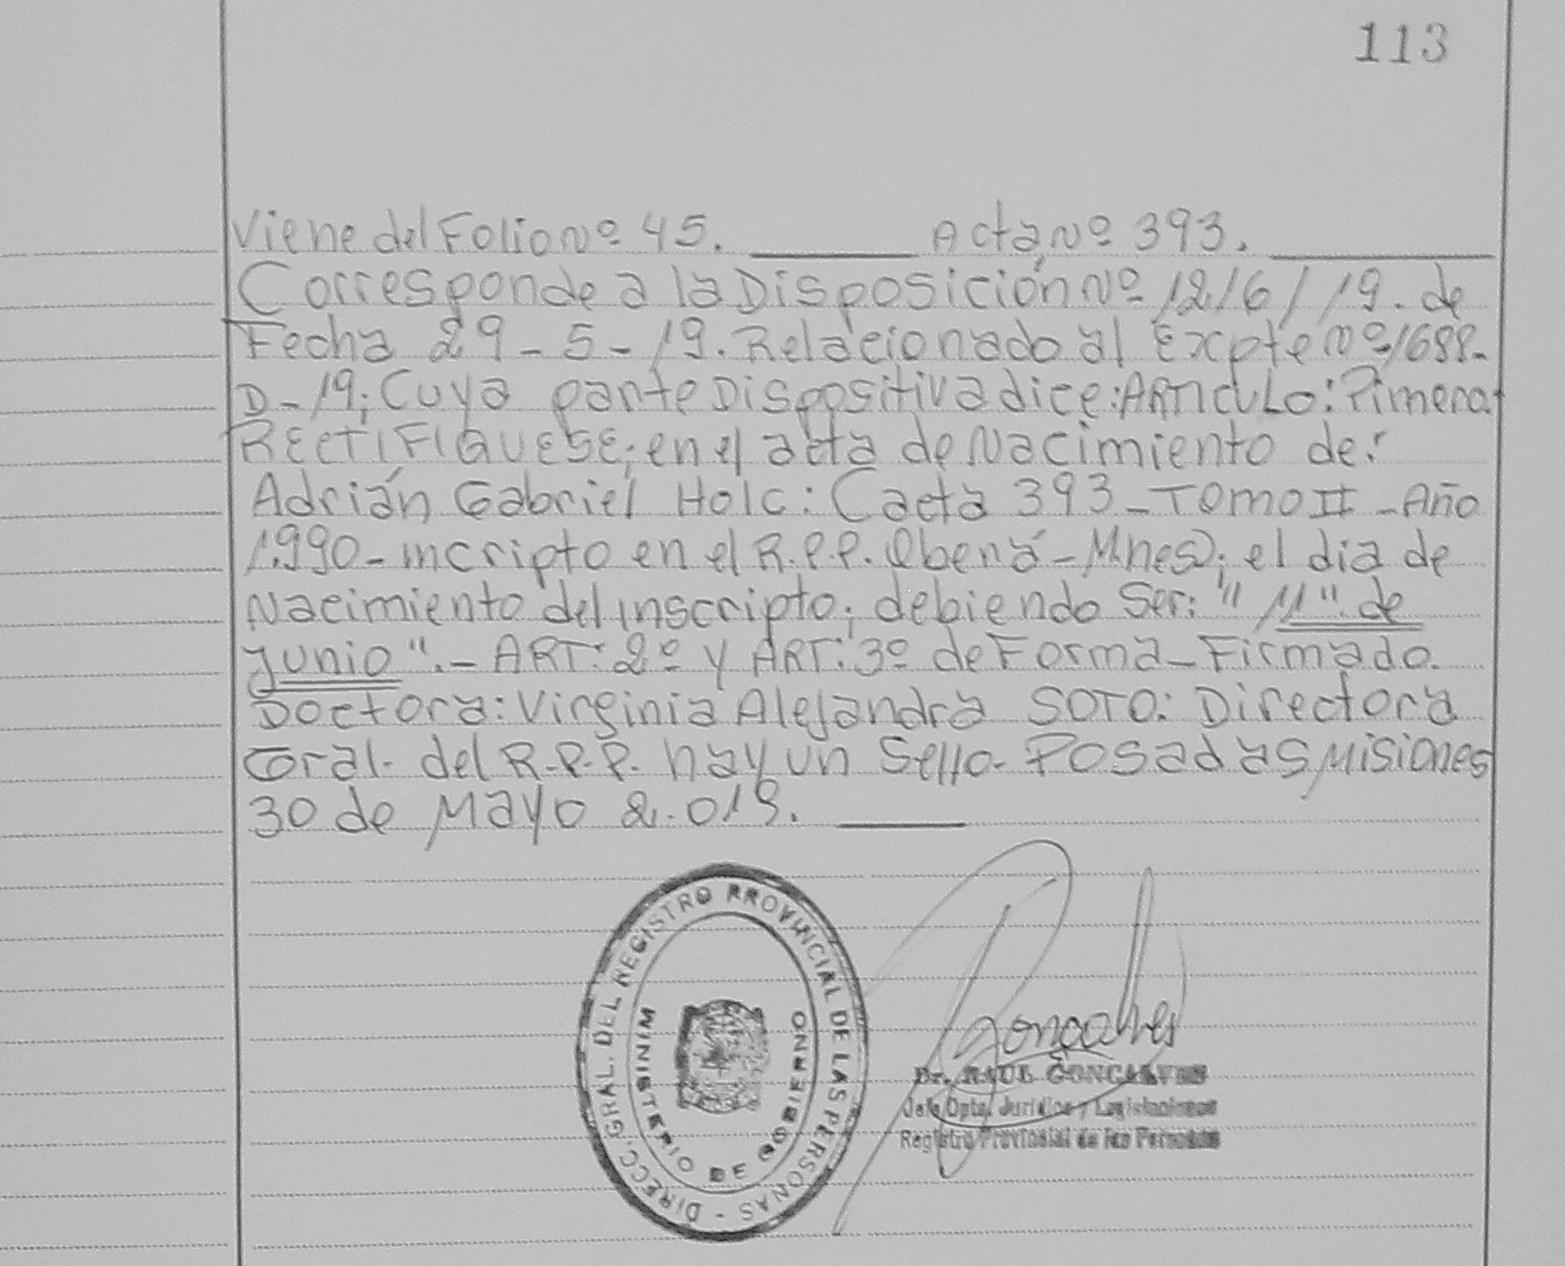 113
Viene del Folio Nº 45. Acta, Nº 393.
Corresponde a la Disposición Nº 1216/19. de
Fecha 29-5-19. Relacionado al Expte Nº 1688-
D-19; Cuya parte Dispositiva dice: ARTICULO: Pimera:
RECTIFIQUESE; en el acta de Nacimiento de:
Adrián Gabriel Holc: (acta 393-TOMO II-Año
1.990-incripto en el R.P.P. Oberá-Mnes); el dia de
Nacimiento del inscripto; debiendo Ser: "11" de
junio".- ART: 2º y ART: 3º de Forma-Firmado.
Doctora: Virginia Alejandra SOTO: Directora
Gral. del R.P.P. hay un Sello. Posadas Misiones
30 de Mayo 2.019.
DIRECC. GRAL. DEL REGISTRO PROVINCIAL DE LAS PERSONAS -
MINISTERIO DE GOBIERNO
Goncalves
Dr. RAUL GONCALVES
Jefe Dpto. Jurídico y Legislaciones
Registro Provincial de las Personas